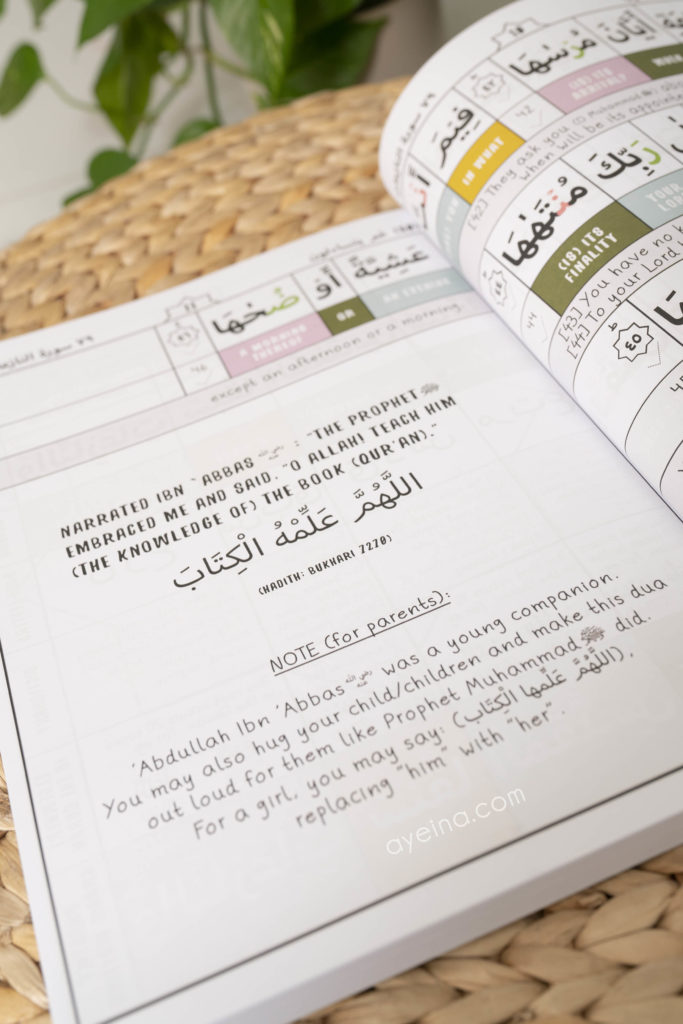 عَشِيَّةً أَوْ ضُحَىٰهَا
AN EVENING OR A MORNING THEREOF
except an afternoon or a morning.
NARRATED IBN `ABBAS رضي الله عنه : "THE PROPHET ﷺ
EMBRACED ME AND SAID, "O ALLAH! TEACH HIM
(THE KNOWLEDGE OF) THE BOOK (QUR'AN)."
اللَّهُمَّ عَلِّمْهُ الْكِتَابَ
(HADITH: BUKHARI 7270)
NOTE (for parents):
'Abdullah Ibn 'Abbas رضي الله عنه was a young companion.
You may also hug your child/children and make this dua
out loud for them like Prophet Muhammad ﷺ did.
For a girl, you may say: (اللَّهُمَّ عَلِّمها الْكِتَابَ),
replacing "him" with "her".
ayeina.com
أَيَّانَ مُرْسَىٰهَا
(IS) ITS ARRIVAL?
فِيمَ
IN WHAT
[42] They ask you (O Muhammad ﷺ)
when will be its appointe
رَبِّكَ مُنتَهَىٰهَا
YOUR LORD (IS) ITS FINALITY
٤٤
44
[43] You have no k
[44] To your Lord
٤٥